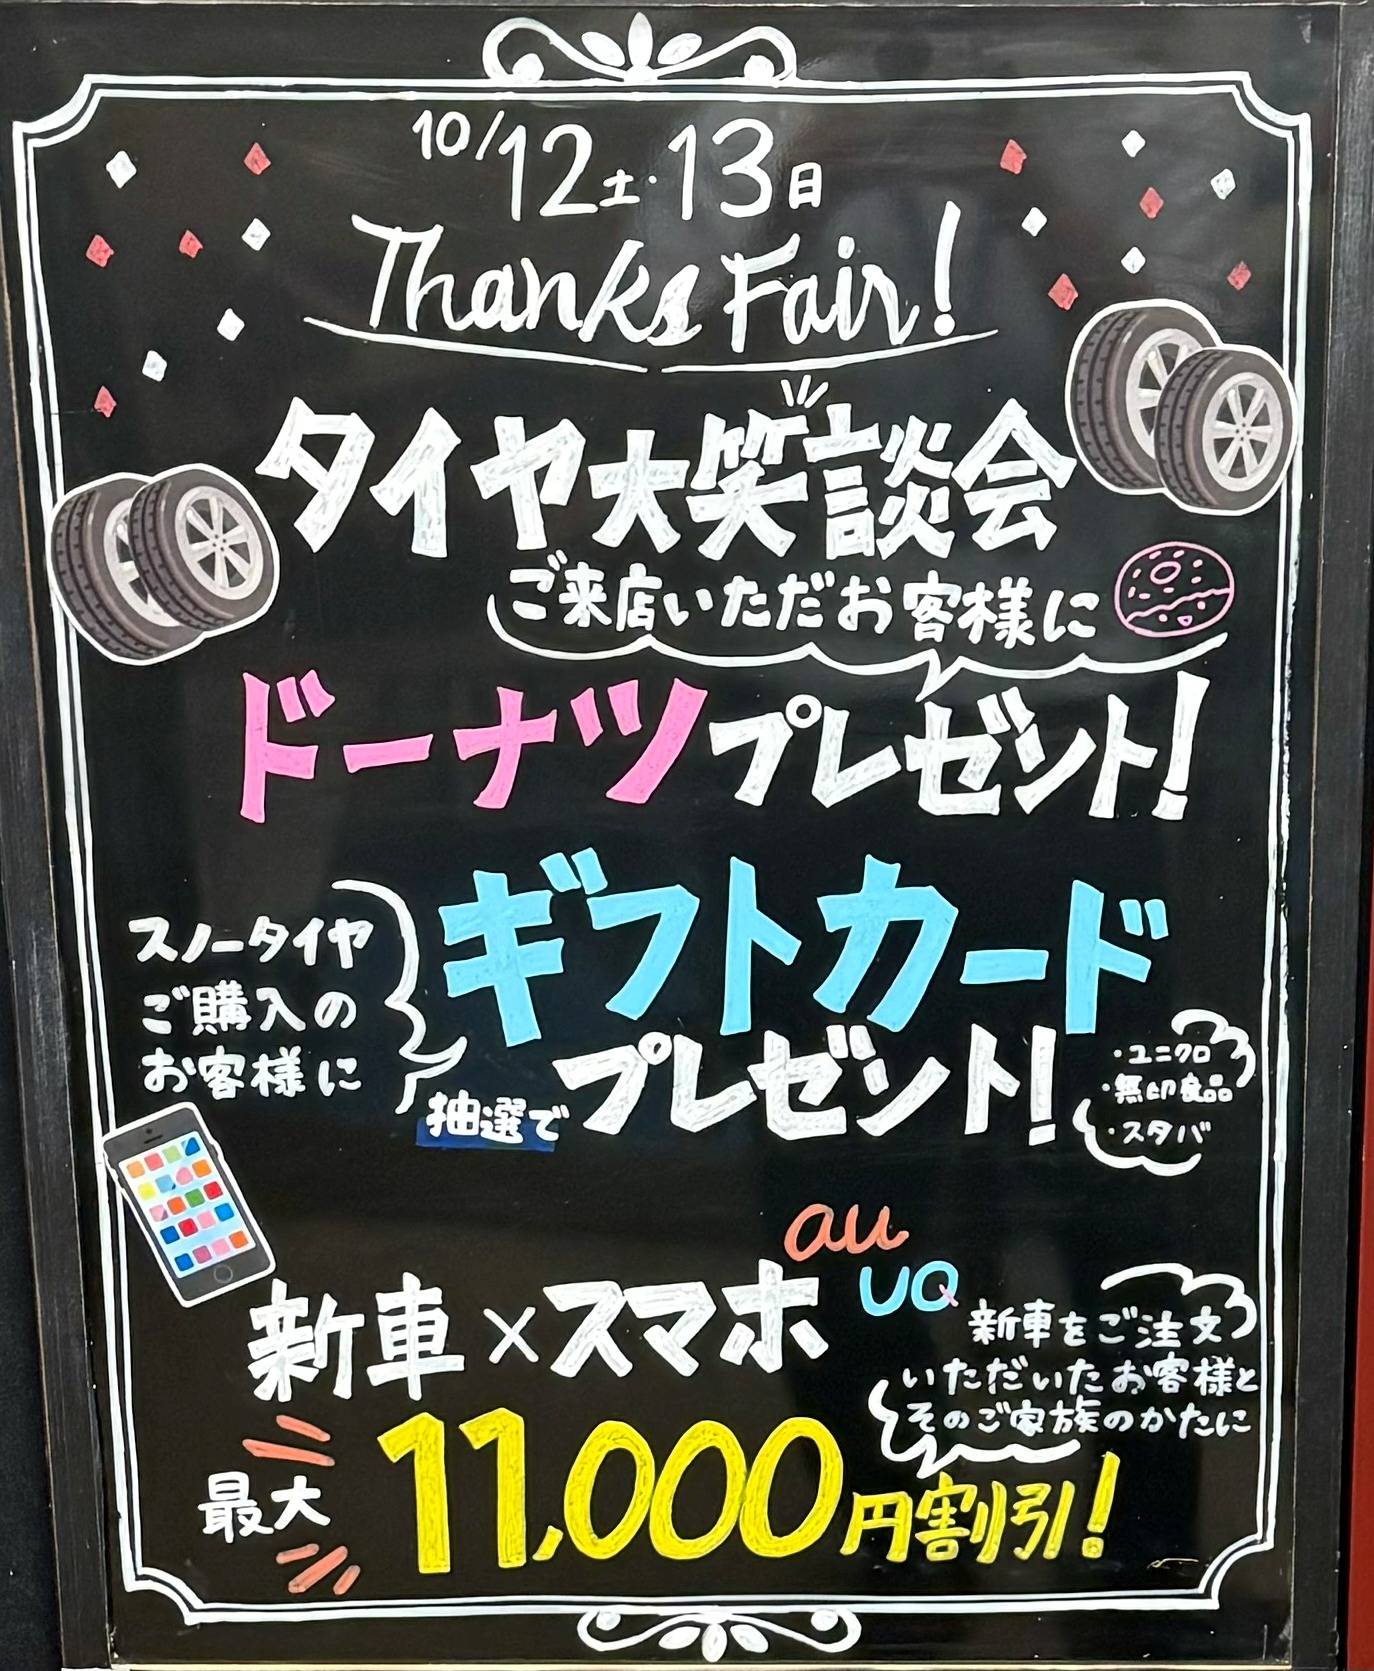 10/12土・13日
Thanks Fair!
タイヤ大笑談会
ご来店いただだお客様に
ドーナツプレゼント!
スノータイヤ
ご購入の
お客様に
ギフトカード
抽選でプレゼント!
・ユニクロ
・無印良品
・スタバ
au
UQ
新車×スマホ
新車をご注文
いただいたお客様と
そのご家族のかたに
最大
11,000円割引!